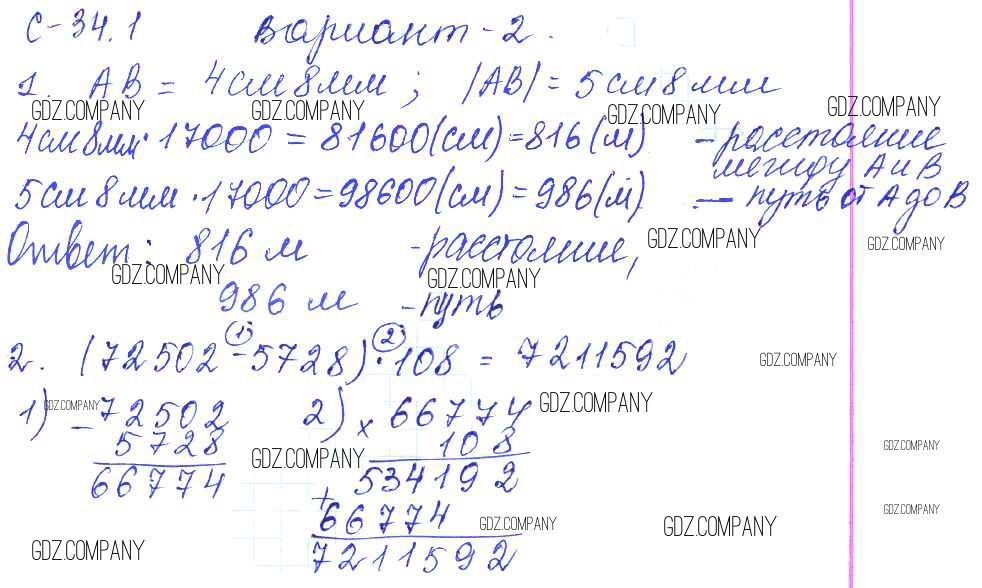 С-34.1 Вариант-2.
1. AB = 4см 8мм; |AB| = 5см 8мм
GDZ.COMPANY GDZ.COMPANY GDZ.COMPANY GDZ.COMPANY
4см 8мм · 17000 = 81600(см) = 816(м) - расстояние
между А и В
5см 8мм · 17000 = 98600(см) = 986(м) — путь от А до В
Ответ: 816 м - расстояние,
GDZ.COMPANY GDZ.COMPANY
GDZ.COMPANY GDZ.COMPANY
986 м - путь
(1) (2)
2. (72502 - 5728) · 108 = 7211592
GDZ.COMPANY
1) 72502 2) × 66774
GDZ.COMPANY GDZ.COMPANY
- 5728 108
GDZ.COMPANY GDZ.COMPANY
66774 534192
+
66774
GDZ.COMPANY GDZ.COMPANY GDZ.COMPANY
7211592
GDZ.COMPANY